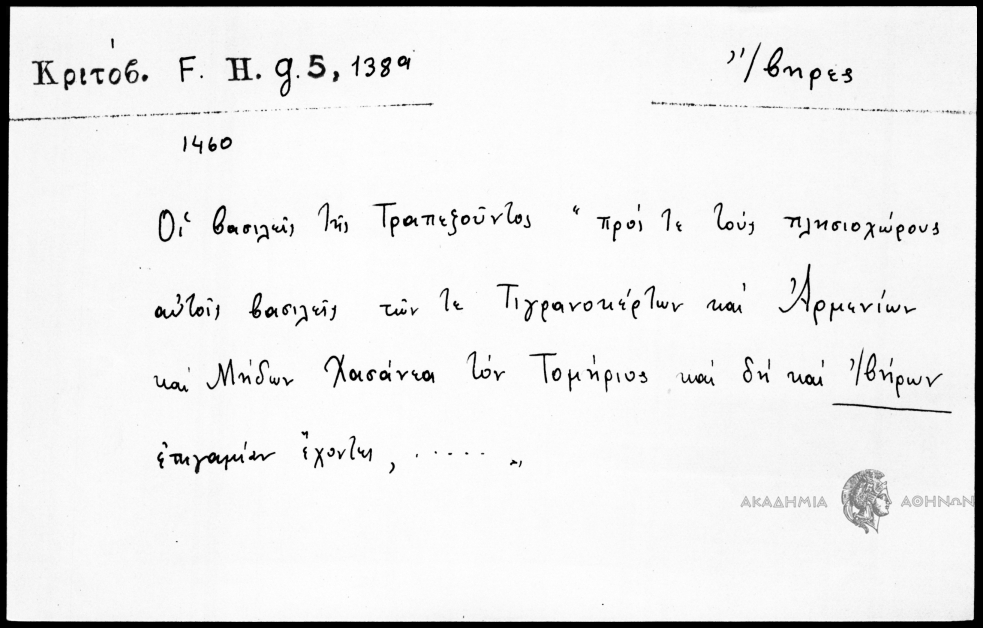 Κριτόβ. F. H. g. 5, 138α
Ἴβηρες
1460
Οἱ βασιλεῖς τῆς Τραπεζοῦντος "πρός τε τούς πλησιοχώρους
αὐτοῖς βασιλεῖς τῶν τε Τιγρανοκέρτων καί Ἀρμενίων
καί Μήδων Χασάνεα τόν Τομήριος καί δή καί Ἰβήρων
ἐπιγαμίαν ἔχοντες, ..... "
ΑΚΑΔΗΜΙΑ ΑΘΗΝΩΝ